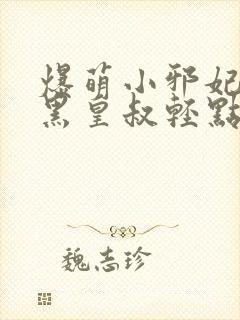 爆萌小邪妃
黑皇叔輕點
魏志珍